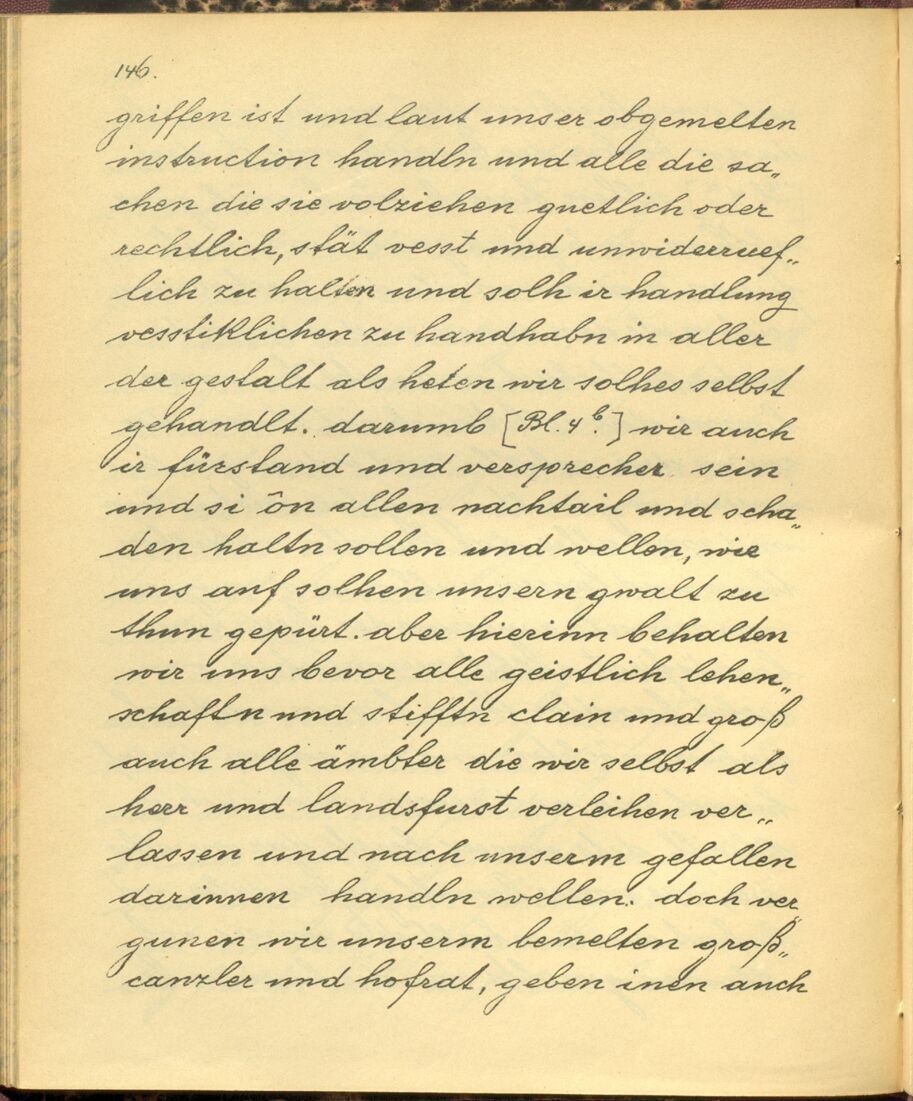 146.
griffen ist und laut unser obgemelten
instruction handln und alle die sa„
chen die sie volziehen guetlich oder
rechtlich, stät vesst und unwiderruef„
lich zu halten und solh ir handlung
vesstiklichen zu handhabn in aller
der gestalt als heten wir solhes selbst
gehandlt. darumb [Bl. 4b.] wir auch
ir fürstand und versprecher sein
und si ôn allen nachtail und scha„
den haltn sollen und wellen, wie
uns auf solhen unsern gwalt zu
thun gepürt. aber hierinn behalten
wir uns bevor alle geistlich lehen„
schaftn und stifftn clain und groß
auch alle ämbter die wir selbst als
herr und landsfurst verleihen ver„
lassen und nach unserm gefallen
darinnen handln wellen. doch ver„
gunen wir unserm bemelten groß„
canzler und hofrat, geben inen auch